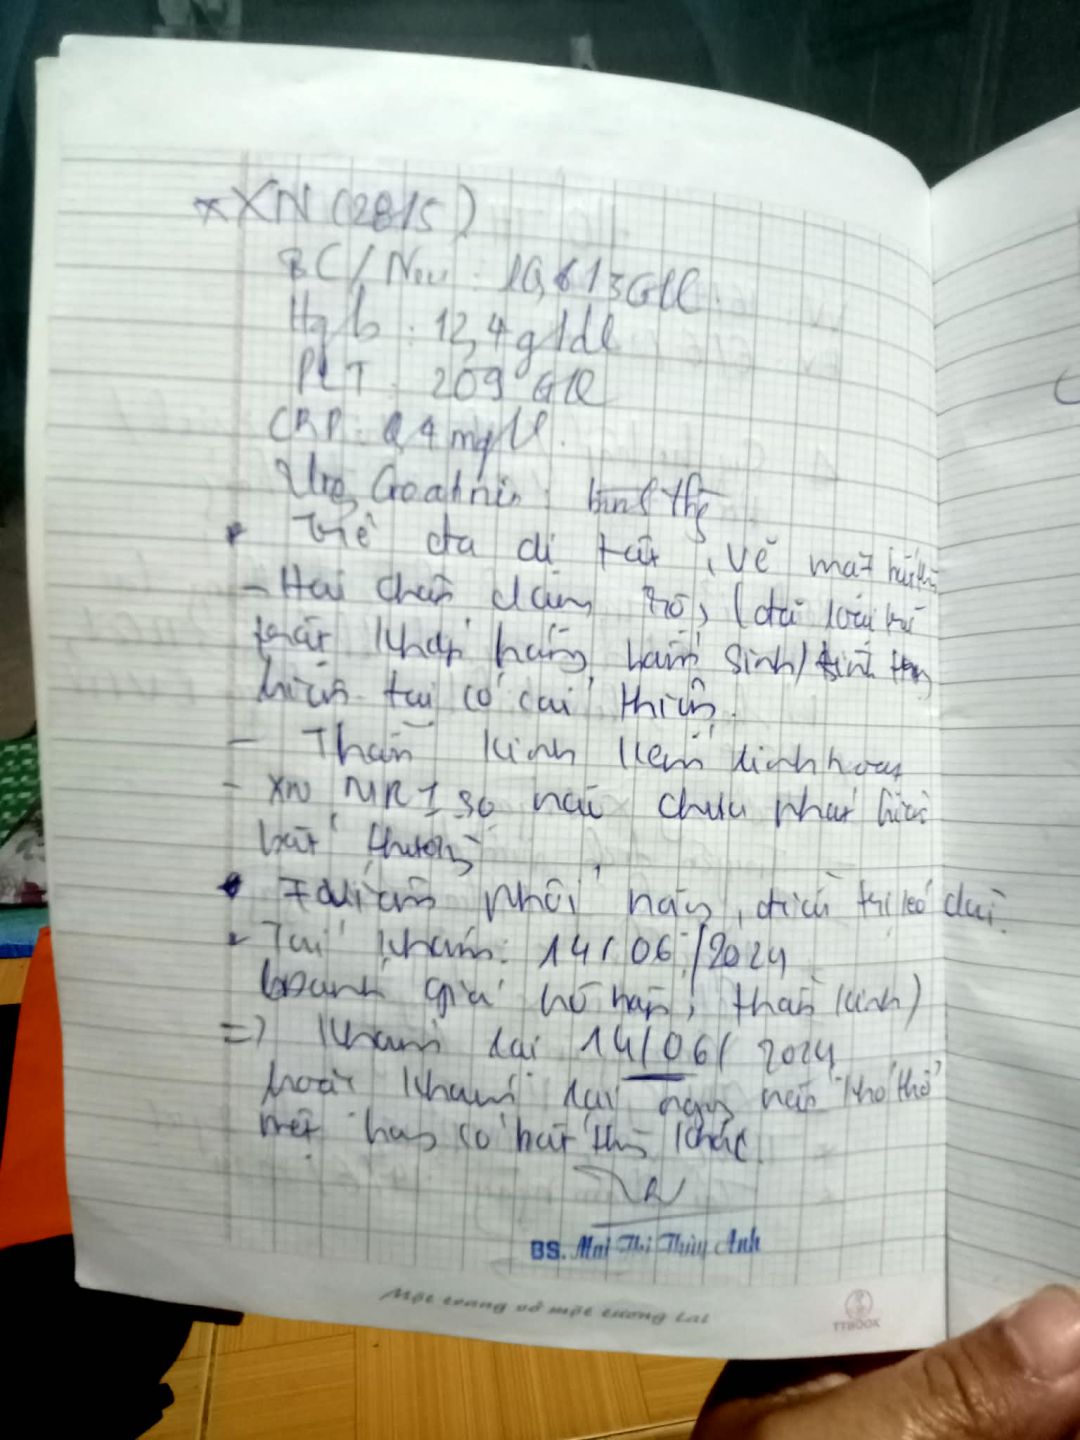 * XN (28/5)
BC/Neu: G/l.
Hgb: 12,4 g/dl
PLT: 209 G/l
CRP: 0,4 mg/l.
Ure, Creatinin: bình thg
Trẻ đa dị tật, vẻ mặt
- Hai chân (đã loại trừ
trật khớp háng bẩm sinh)
hiện tại có cải thiện.
- Thần kinh kém linh hoạt
- XN MRI sọ não chưa phát hiện
bất thường
phổi nặng, điều trị kéo dài.
Tái khám: 14/06/2024
(đánh giá hô hấp, thần kinh)
=> Khám lại 14/06/2024
hoặc khám lại ngay nếu khó thở
mệt hay có bất thg khác.
BS. Mai Thị Thùy Anh
Một trang vở một tương lai
TTBOOK